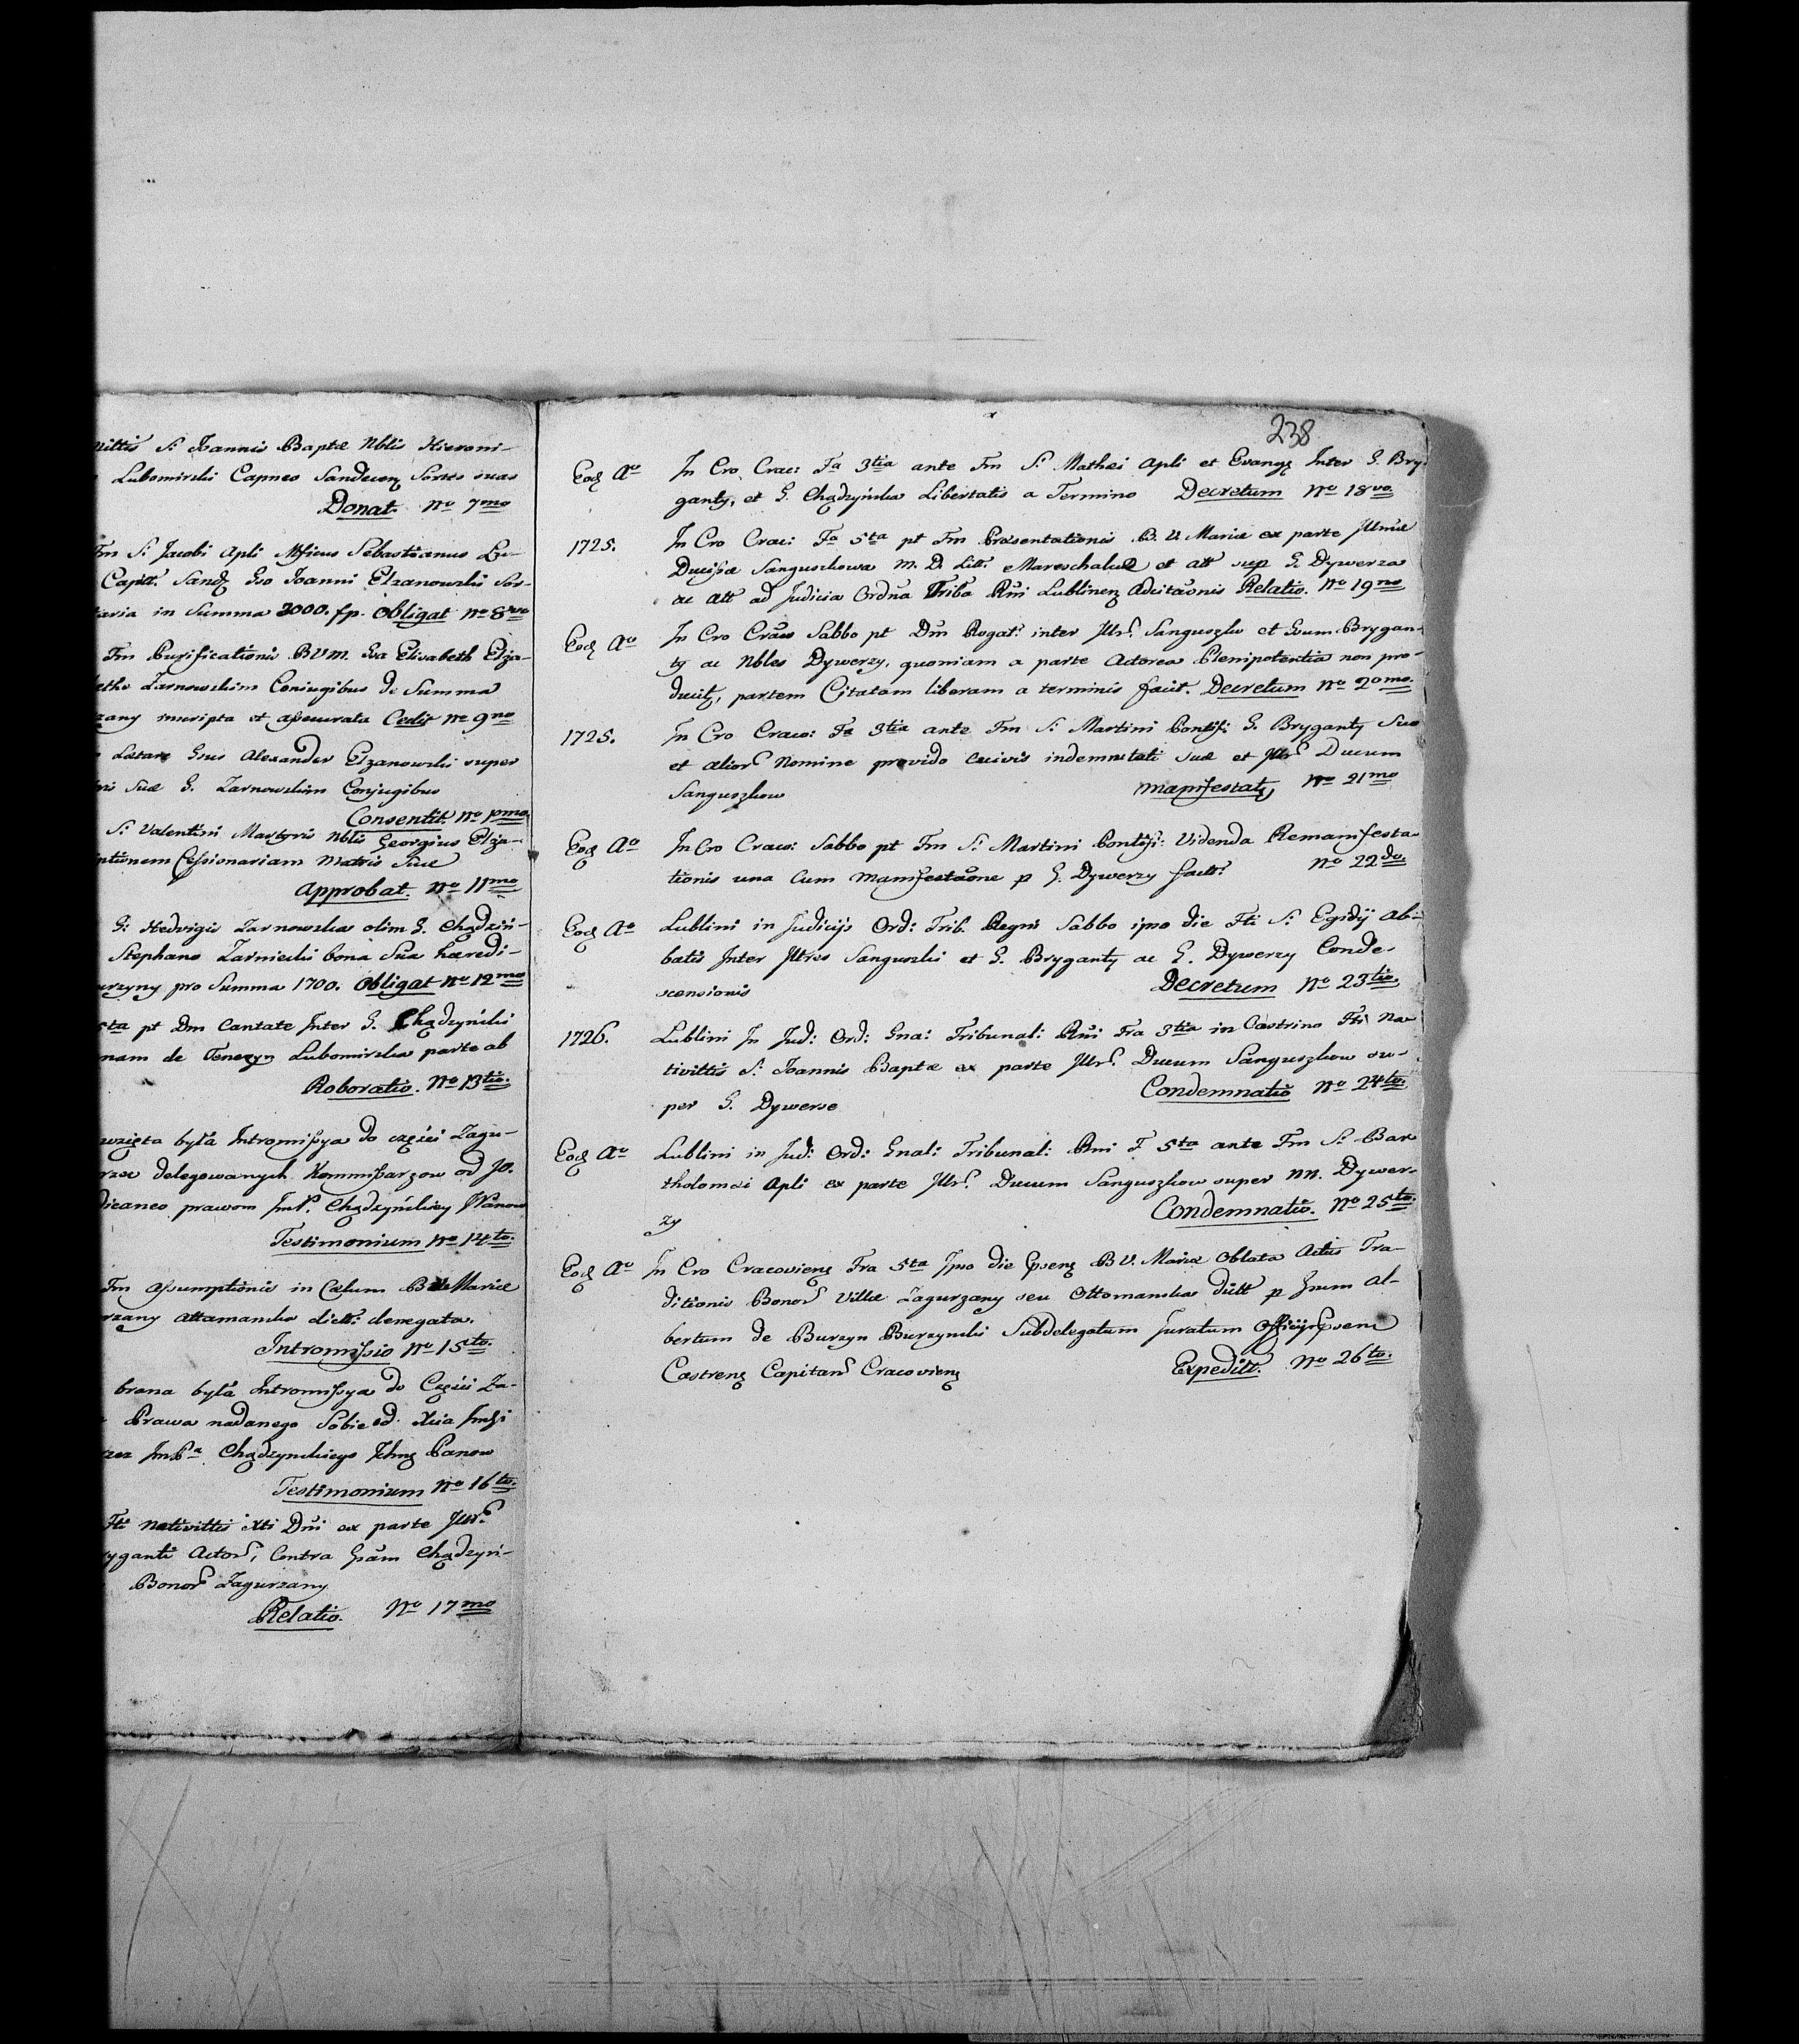 nittis S: Joannis Baptæ Nblis Hieroni-
Lubomirski Capneo Sandecen Sortes suas
Donat. No 7mo
Fm S: Jacobi Apli Mficus Sebastianus Lu-
Capit: Sand Gso Joanni Elzanowski Sor-
taria in Summa 3000. fp. Obligat No 8vo
Fm Purificationis BVM. Gsa Elisabeth Elza-
Zarnowskim Coniugibus de Summa
zany inscripta et assecurata Cedit No 9no
Lætare Gsus Alexander Elzanowski super
suæ G. Zarnowskim Conjugibus
Consentit. No 10mo
S: Valentini Martyris Nblis Georgius Elza-
ntionem Cessionariam Matris Suæ
Approbat. No 11mo
G: Hedvigis Zarnowska olim G. Chądziń-
Stephano Zarnicki bona Sua hæredi-
urzyny pro Summa 1700. Obligat No 12mo
5ta pt Dm Cantate Inter G. Chądzyński
nam de Tenczyn Lubomirska parte ab
Roboratio. No 13tio.
wzięta była Intromissya do części Zagu-
rzez delegowanych Kommissarzow od JO.
dicaneo prawom ImP. Chądzyńskiey WPanow
Testimonium No 14to.
Fm Assumptionis in Cælum B V Mariæ
rzany Attamanska dictt: denegata.
Intromissio No 15to.
brana była Intromissya do Części Za-
Prawa nadanego Sobie od Xcia Imści
rzez ImPa Chądzynskiego Ichmę Panow
Testimonium No 16to.
Fti nativittis Xti Dni ex parte Illr.
yganti Actor, Contra Gsam Chądzyń-
Bonor Zagurzany
Relatio. No 17mo
238
Eod Ao In Cro Crac: Fa 3tia ante Fm S: Mathei Apli et Evang Inter G. Bry-
ganty, et G. Chądzyńska Libertatis a Termino Decretum No 18vo
1725. In Cro Crac: Fa 5ta pt Fm Præsentationis B. V Mariæ ex parte Illmæ
Ducissæ Sanguszkowa M. D. Litt: Mareschalcæ et att sup G. Dywerza
ac att ad Judicia Ordna Triba Rni Lublinen Adcitaonis Relatio. No 19no
Eod Ao In Cro Craco Sabbo pt Dm Rogat: inter Illr. Sanguszko et Gsum Brygan-
ty ac Nbles Dywerzy, quoniam a parte Actorea Plenipotentia non pro-
ducit, partem Citatam liberam a terminis facit. Decretum No 20mo.
1725. In Cro Craco: Fa 3tia ante Fm S: Martini Pontif: G. Bryganty Suo
et alior Nomine provido cuivis indemnitati suæ et Illr Ducum
Sanguszkow manifestat, No 21mo
Eod Ao In Cro Craco: Sabbo pt Fm S: Martini Pontif: Videnda Remanifesta-
tionis una Cum manifestaone p G. Dywerzy fact: No 22do.
Eod Ao Lublini in Judicijs Ord: Trib. Regni Sabbo ipso die Fti S: Egidij Ab-
batis Inter Illres Sanguszki et G. Bryganty ac G. Dywerzy Conde-
scensionis Decretum No 23tio.
1726. Lublini In Jud: Ord: Gna: Tribunal: Rni Fra 3tia in Castrino Fti Na-
tivittis S: Joannis Baptæ ex parte Illr. Ducum Sanguszkow su-
per G. Dywerse Condemnatio No 24to.
Eod Ao Lublini in Jud: Ord: Gnal: Tribunal: Rni F 5ta ante Fm S: Bar
tholomæi Apli ex parte Illr. Ducum Sanguszkow super NN. Dywer-
zy Condemnatio. No 25to.
Eod Ao In Cro Cracovien Fra 5ta Ipso die B V. Mariæ Oblata Actus Tra-
ditionis Bonor Villæ Zagurzany seu Ottomanska dict p Gsum Al-
bertum de Burzyn Burzynski Subdelegatum Juratum Officij
Castren Capitan Cracovien Expeditt. No 26to.